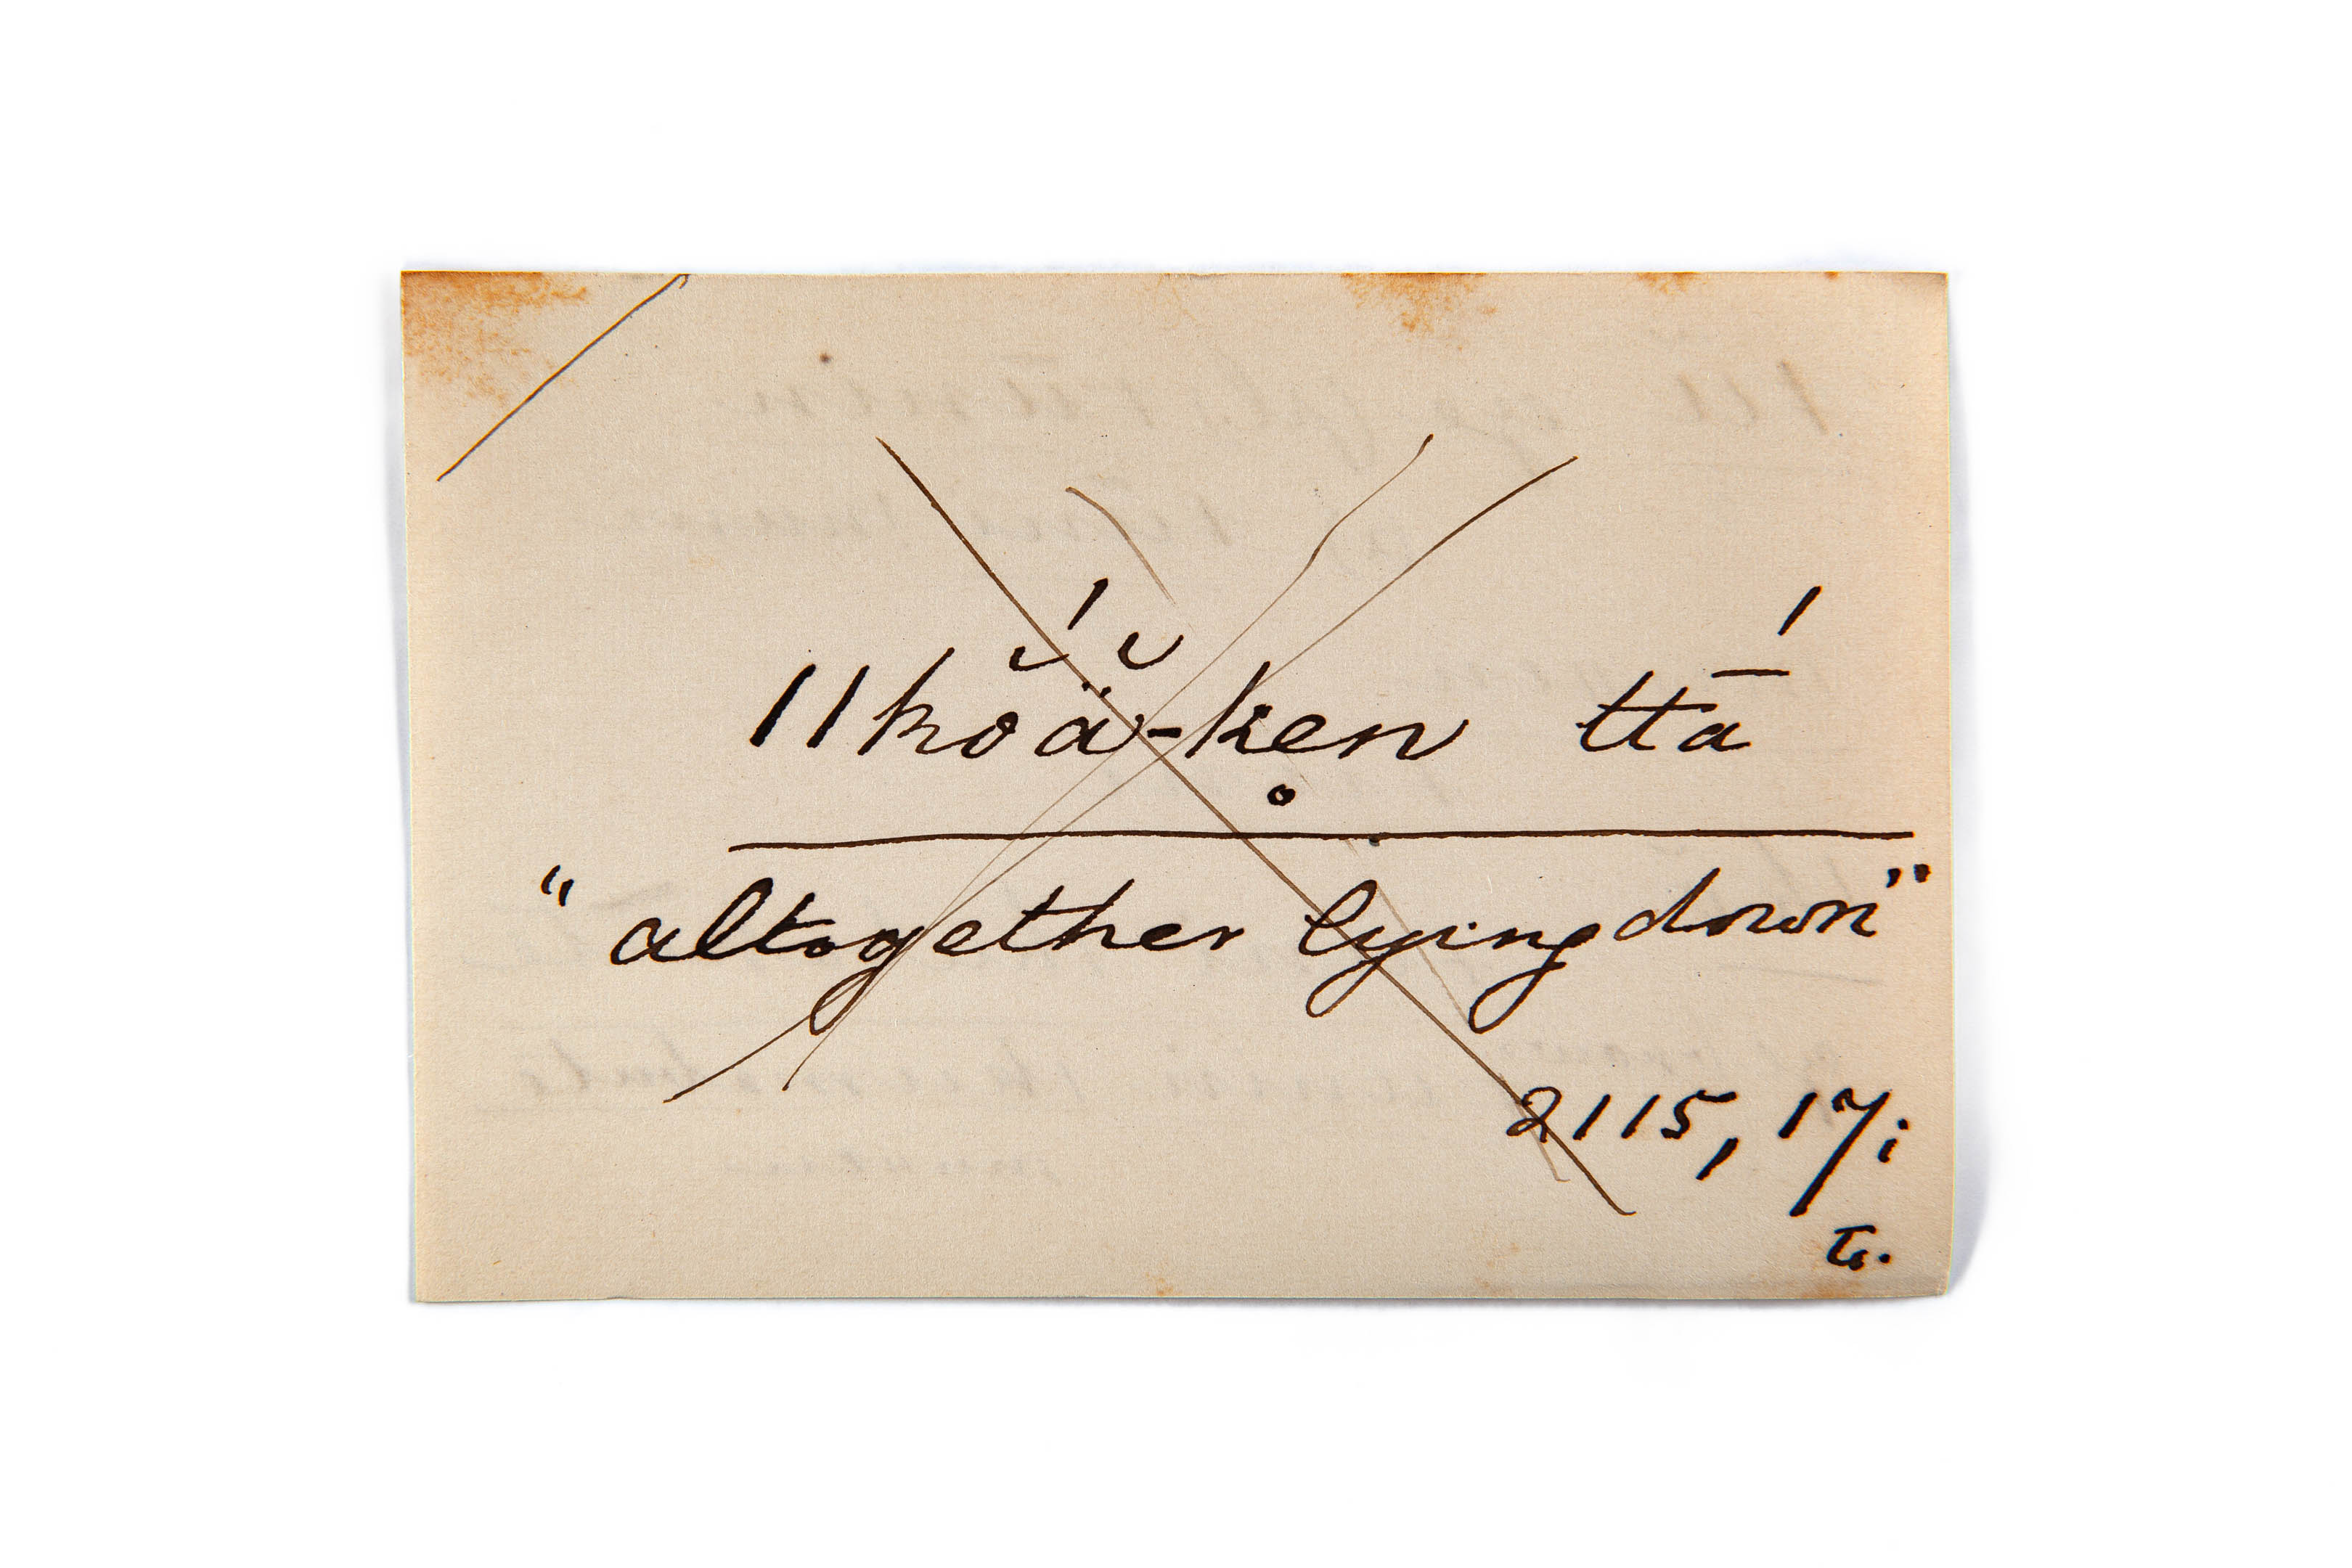 ǁkŏ́ä̆-ḳen̥ ttā́
“altogether lying down”
2115, 17;
tr.